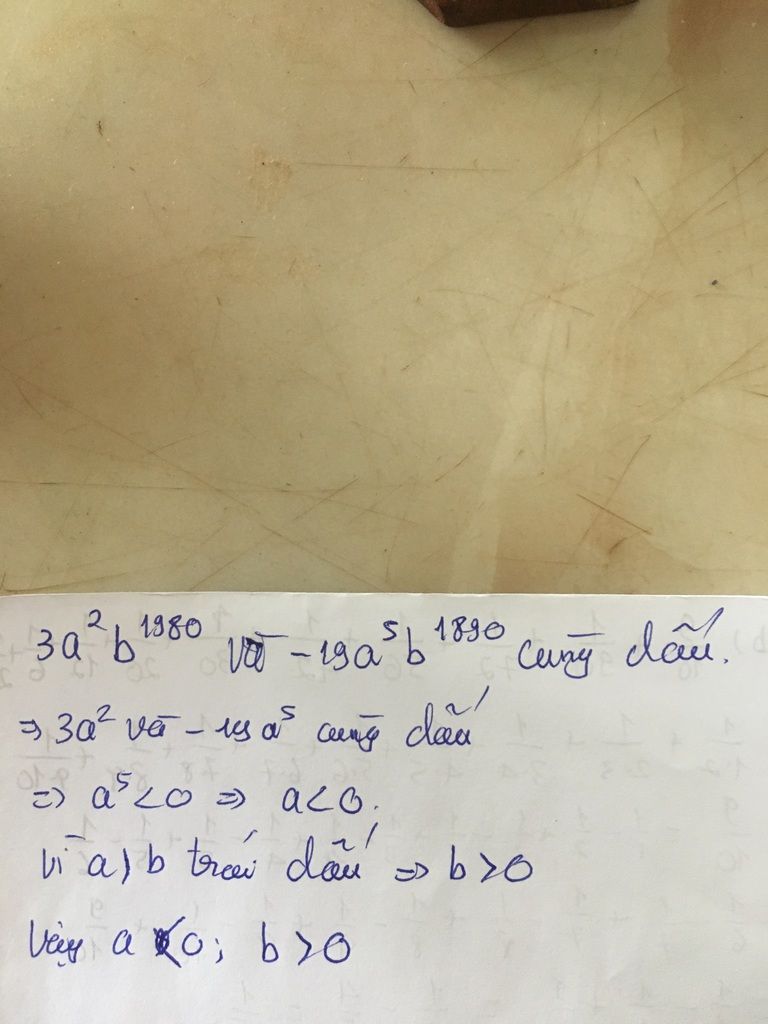 3a²b¹⁹⁸⁰ và -19a⁵b¹⁸⁹⁰ cùng dấu.
⇒ 3a² và -19a⁵ cùng dấu
⇒ a⁵<0 ⇒ a<0.
vì a, b trái dấu ⇒ b>0
Vậy a<0; b>0